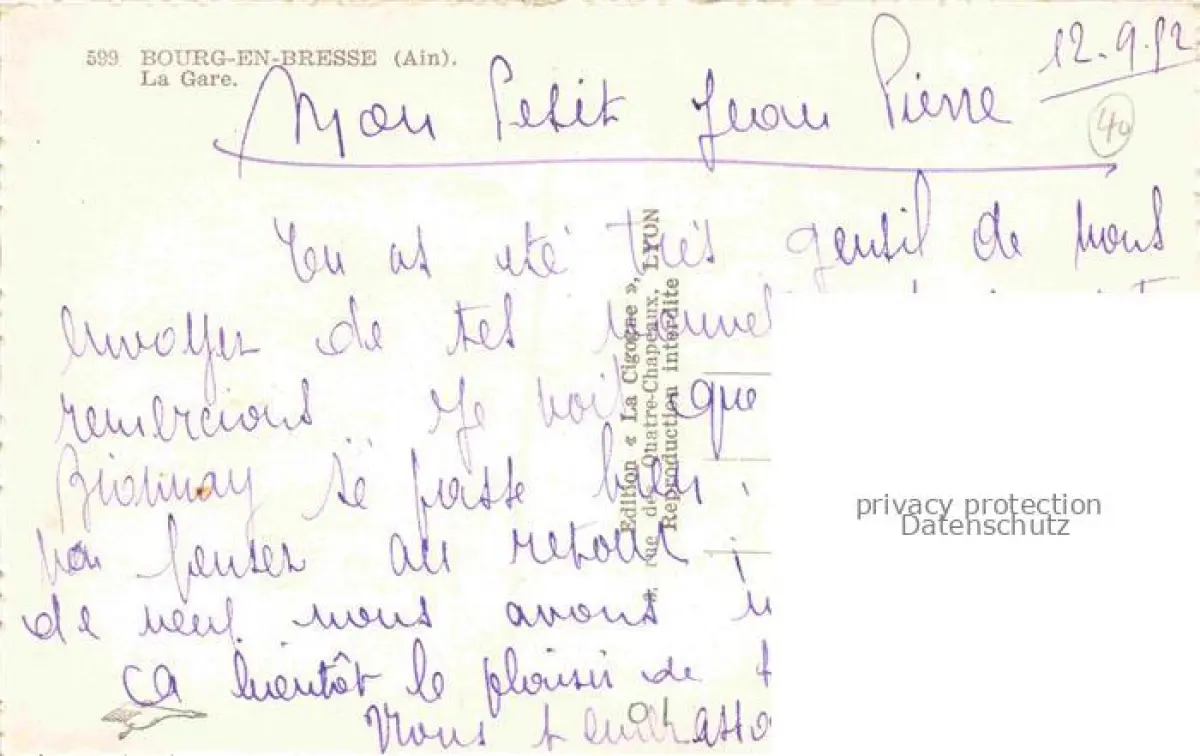 599 BOURG-EN-BRESSE (Ain).
La Gare.
12.9.52
40
Mon Petit Jean Pierre
Tu as été très gentil de nous
envoyer de tes
remercions Je vois que
se passe bien,
penser au retour;
de neuf nous avons
ça bientôt le plaisir de
Nous t'embrasso
Edition « La Cigogne »,
rue des Quatre-Chapeaux, LYON
Reproduction interdite
privacy protection
Datenschutz